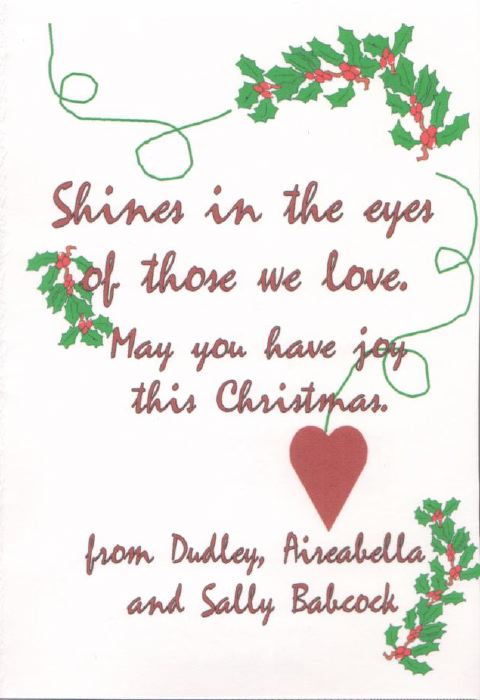 Shines in the eyes
of those we love.
May you have joy
this Christmas.
from Dudley, Aireabella
and Sally Babcock